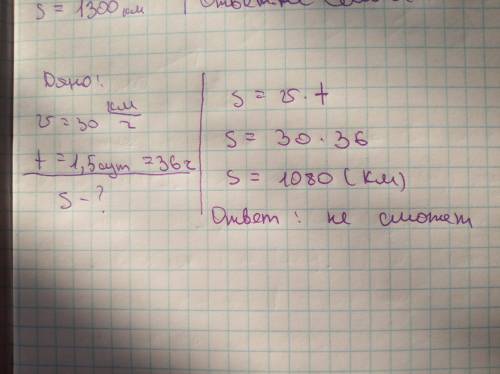 S = 1300 км
Дано:
v = 30 км/ч
t = 1,5 сут = 36 ч
S - ?
S = v · t
S = 30 · 36
S = 1080 (км)
Ответ: не сможет